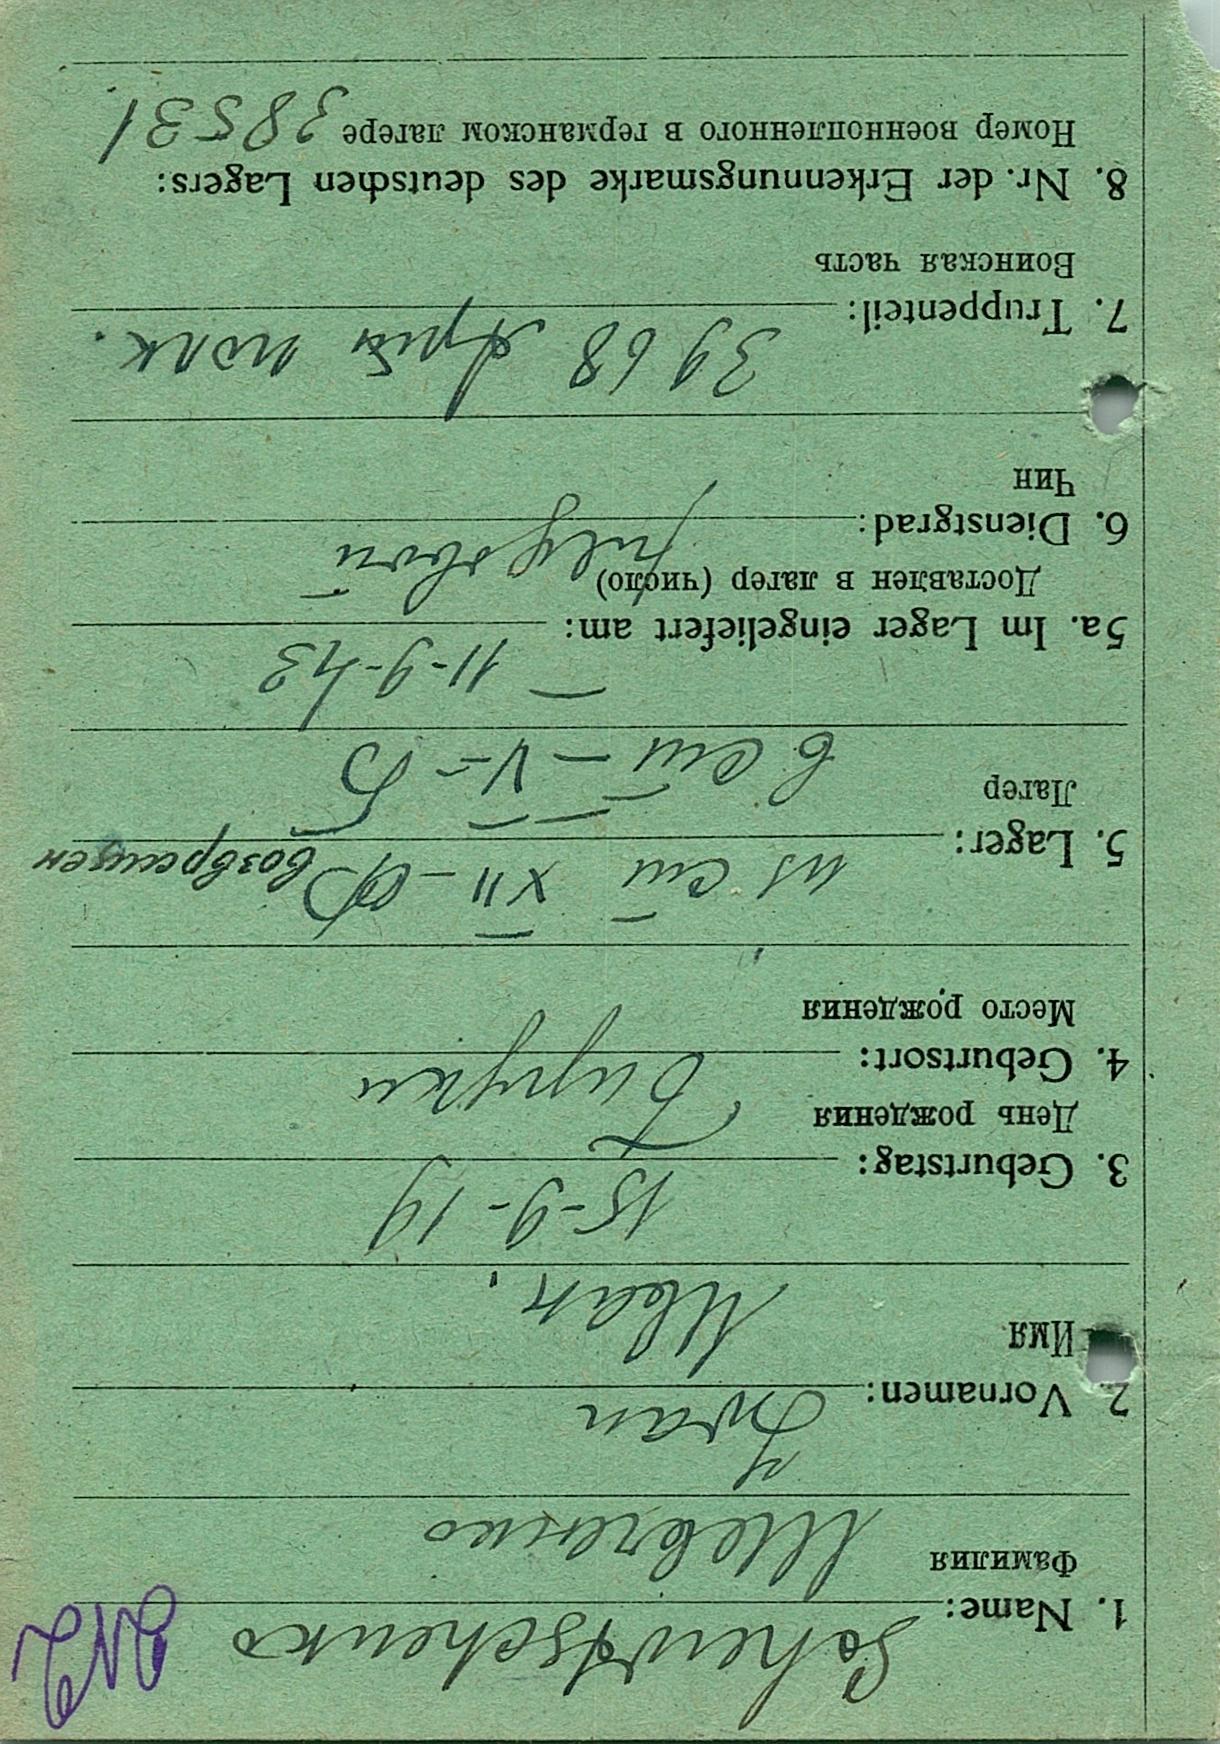 1. Name: Schewtschenko
Фамилия Шевченко
Iwan
2. Vornamen:
Имя Иван.
15-9-19
3. Geburtstag:
День рождения
4. Geburtsort:
Место рождения
из XII-Ф возвращен
5. Lager:
Лагер
в V-Б
11-9-43
5a. Im Lager eingeliefert am:
Доставлен в лагер (число)
рядовой
6. Dienstgrad:
Чин
39 68 полк.
7. Truppenteil:
Воинская часть
8. Nr. der Erkennungsmarke des deutschen Lagers:
Номер военнопленного в германском лагере 38531